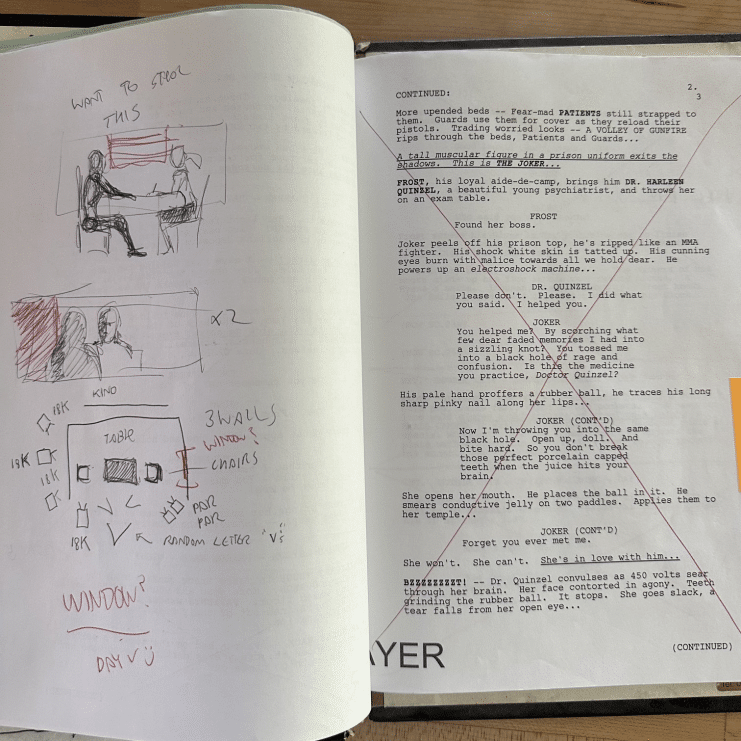 WANT TO STEAL
THIS
x2
KINO
18K
3 WALLS
TABLE
WINDOW?
18K
CHAIRS
18K
PAR
PAR
18K
RANDOM LETTER "V"s
WINDOW?
DAY
CONTINUED:
2.
3
More upended beds -- Fear-mad PATIENTS still strapped to
them. Guards use them for cover as they reload their
pistols. Trading worried looks -- A VOLLEY OF GUNFIRE
rips through the beds, Patients and Guards...
A tall muscular figure in a prison uniform exits the
shadows. This is THE JOKER...
FROST, his loyal aide-de-camp, brings him DR. HARLEEN
QUINZEL, a beautiful young psychiatrist, and throws her
on an exam table.
FROST
Found her boss.
Joker peels off his prison top, he's ripped like an MMA
fighter. His shock white skin is tatted up. His cunning
eyes burn with malice towards all we hold dear. He
powers up an electroshock machine...
DR. QUINZEL
Please don't. Please. I did what
you said. I helped you.
JOKER
You helped me? By scorching what
few dear faded memories I had into
a sizzling knot? You tossed me
into a black hole of rage and
confusion. Is this the medicine
you practice, Doctor Quinzel?
His pale hand proffers a rubber ball, he traces his long
sharp pinky nail along her lips...
JOKER (CONT'D)
Now I'm throwing you into the same
black hole. Open up, doll. And
bite hard. So you don't break
those perfect porcelain capped
teeth when the juice hits your
brain.
She opens her mouth. He places the ball in it. He
smears conductive jelly on two paddles. Applies them to
her temple...
JOKER (CONT'D)
Forget you ever met me.
She won't. She can't. She's in love with him...
BZZZZZZZZT! -- Dr. Quinzel convulses as 450 volts sear
through her brain. Her face contorted in agony. Teeth
grinding the rubber ball. It stops. She goes slack, a
tear falls from her open eye...
AYER
(CONTINUED)